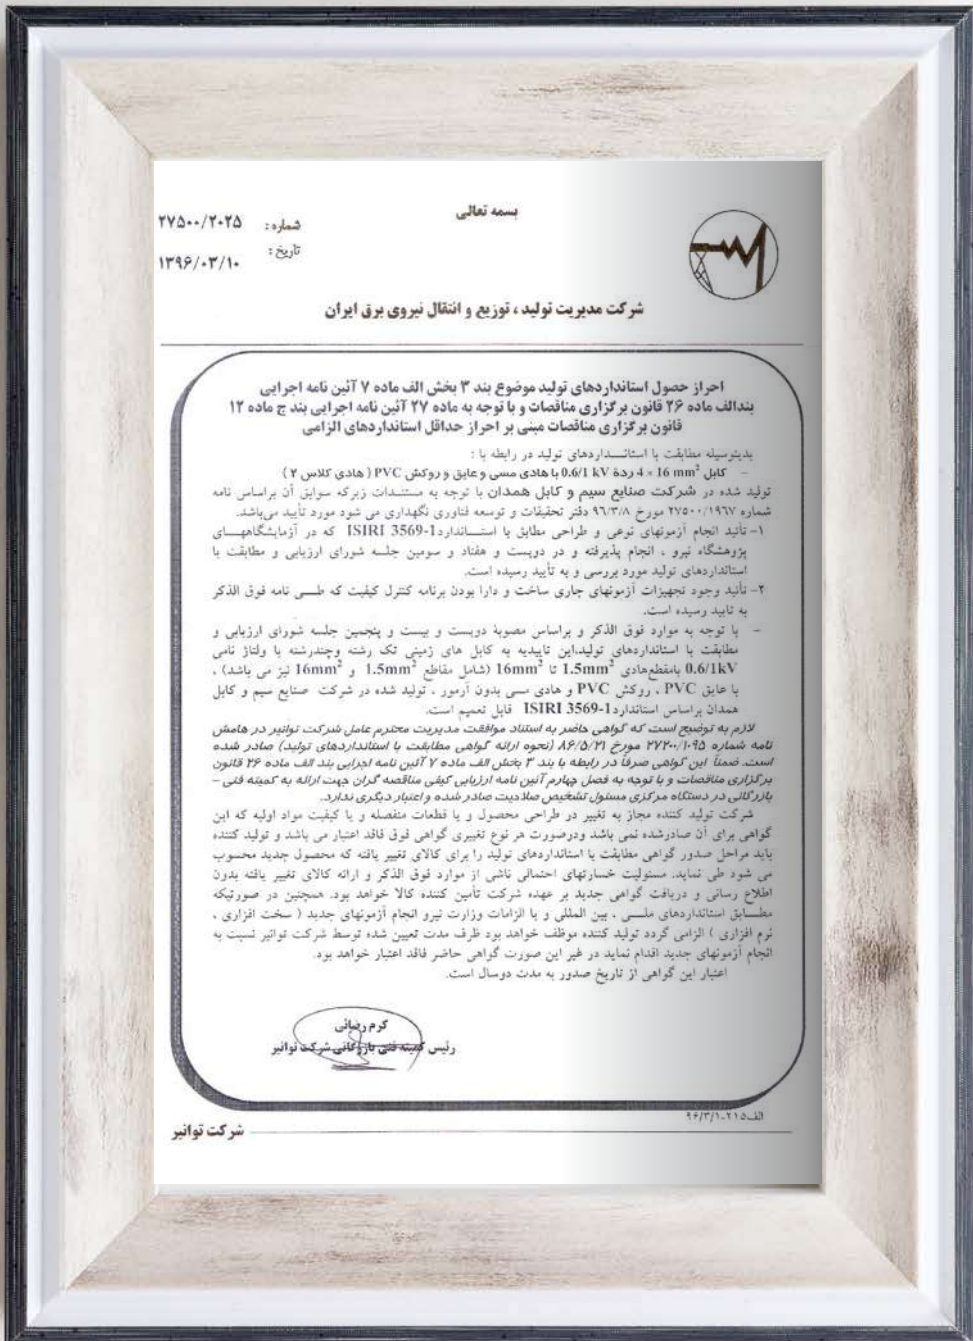 بسمه تعالی
شماره : ۲۷۵۰۰/۲۰۲۵
تاریخ : ۱۳۹۶/۰۳/۱۰
شرکت مدیریت تولید ، توزیع و انتقال نیروی برق ایران
احراز حصول استانداردهای تولید موضوع بند ۳ بخش الف ماده ۷ آئین نامه اجرایی
بندالف ماده ۲۶ قانون برگزاری مناقصات و با توجه به ماده ۲۷ آئین نامه اجرایی بند ج ماده ۱۲
قانون برگزاری مناقصات مبنی بر احراز حداقل استانداردهای الزامی
بدینوسیله مطابقت با استانداردهای تولید در رابطه با :
– کابل 4 × 16 mm² ردۀ 0.6/1 kV با هادی مسی و عایق و روکش PVC ( هادی کلاس ۲ )
تولید شده در شرکت صنایع سیم و کابل همدان با توجه به مستندات زیرکه سوابق آن براساس نامه
شماره ۲۷۵۰۰/۱۹۶۷ مورخ ۹۶/۳/۸ دفتر تحقیقات و توسعه فناوری نگهداری می شود مورد تأیید می‌باشد.
۱– تأئید انجام آزمونهای نوعی و طراحی مطابق با استاندارد ISIRI 3569-1 که در آزمایشگاههای
پژوهشگاه نیرو ، انجام پذیرفته و در دویست و هفتاد و سومین جلسه شورای ارزیابی و مطابقت با
استانداردهای تولید مورد بررسی و به تأیید رسیده است.
۲– تأئید وجود تجهیزات آزمونهای جاری ساخت و دارا بودن برنامه کنترل کیفیت که طی نامه فوق الذکر
به تایید رسیده است.
– با توجه به موارد فوق الذکر و براساس مصوبۀ دویست و بیست و پنجمین جلسه شورای ارزیابی و
مطابقت با استانداردهای تولید،این تاییدیه به کابل های زمینی تک رشته وچندرشته با ولتاژ نامی
0.6/1kV بامقطع‌هادی 1.5mm² تا 16mm² (شامل مقاطع 1.5mm² و 16mm² نیز می باشد) ،
با عایق PVC ، روکش PVC و هادی مسی بدون آرمور ، تولید شده در شرکت صنایع سیم و کابل
همدان براساس استاندارد ISIRI 3569-1 قابل تعمیم است.
لازم به توضیح است که گواهی حاضر به استناد موافقت مدیریت محترم عامل شرکت توانیر در هامش
نامه شماره ۲۷۲۰۰/۱۰۹۵ مورخ ۸۶/۵/۲۱ (نحوه ارائه گواهی مطابقت با استانداردهای تولید) صادر شده
است. ضمناً این گواهی صرفاً در رابطه با بند ۳ بخش الف ماده ۷ آئین نامه اجرایی بند الف ماده ۲۶ قانون
برگزاری مناقصات و با توجه به فصل چهارم آئین نامه ارزیابی کیفی مناقصه گران جهت ارائه به کمیته فنی –
بازرگانی در دستگاه مرکزی مسئول تشخیص صلاحیت صادر شده و اعتبار دیگری ندارد.
شرکت تولید کننده مجاز به تغییر در طراحی محصول و یا قطعات منفصله و یا کیفیت مواد اولیه که این
گواهی برای آن صادرشده نمی باشد ودرصورت هر نوع تغییری گواهی فوق فاقد اعتبار می باشد و تولید کننده
باید مراحل صدور گواهی مطابقت با استانداردهای تولید را برای کالای تغییر یافته که محصول جدید محسوب
می شود طی نماید. مسئولیت خسارتهای احتمالی ناشی از موارد فوق الذکر و ارائه کالای تغییر یافته بدون
اطلاع رسانی و دریافت گواهی جدید بر عهده شرکت تأمین کننده کالا خواهد بود. همچنین در صورتیکه
مطابق استانداردهای ملی ، بین المللی و یا الزامات وزارت نیرو انجام آزمونهای جدید ( سخت افزاری ،
نرم افزاری ) الزامی گردد تولید کننده موظف خواهد بود ظرف مدت تعیین شده توسط شرکت توانیر نسبت به
انجام آزمونهای جدید اقدام نماید در غیر این صورت گواهی حاضر فاقد اعتبار خواهد بود.
اعتبار این گواهی از تاریخ صدور به مدت دوسال است.
کرم رضائی
رئیس کمیته فنی بازرگانی شرکت توانیر
الف۲۱۵-۹۶/۳/۱
شرکت توانیر